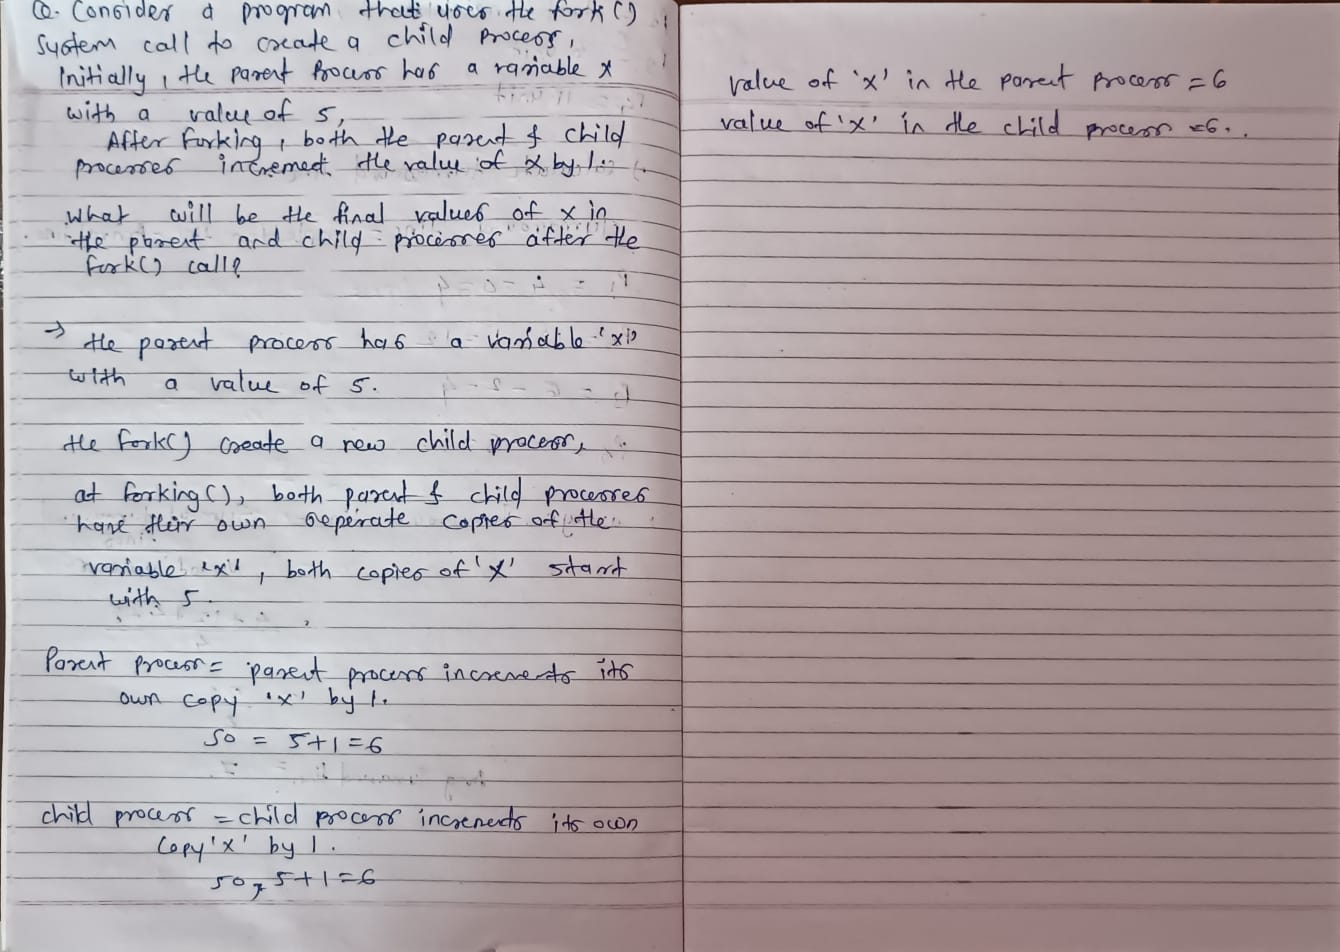 Q. Consider a program that uses the fork()
System call to create a child process,
Initially, the parent process has a variable x
with a value of 5,
After forking, both the parent & child
processes increment the value of x by 1.
What will be the final values of x in
the parent and child processes after the
fork() call?
→ the parent process has a variable 'x'
with a value of 5.
the fork() create a new child process,
at forking(), both parent & child processes
have their own seperate copies of the
variable 'x', both copies of 'x' start
with 5.
Parent process = parent process increments its
own copy 'x' by 1.
so = 5+1=6
child process = child process increments its own
copy 'x' by 1.
so, 5+1=6
value of 'x' in the parent process = 6
value of 'x' in the child process = 6.